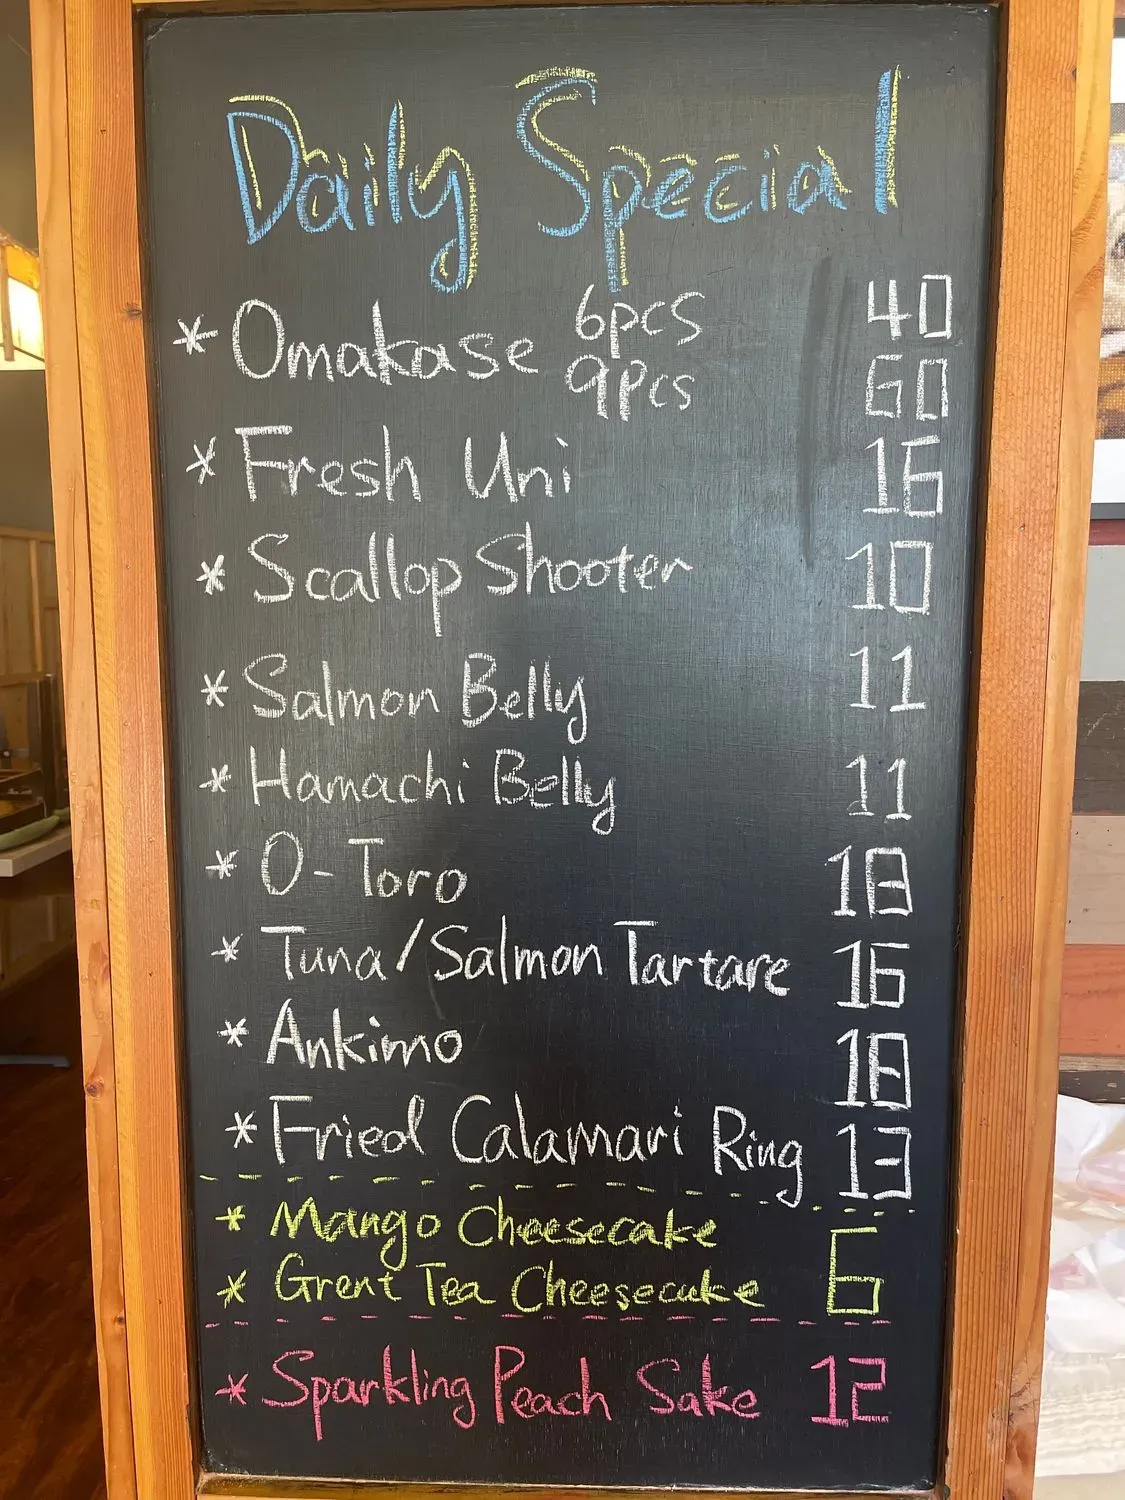 Daily Special
* Omakase 6pcs 40
9pcs 60
* Fresh Uni 16
* Scallop Shooter 10
* Salmon Belly 11
* Hamachi Belly 11
* O-Toro 18
* Tuna/Salmon Tartare 16
* Ankimo 18
* Fried Calamari Ring 13
* Mango Cheesecake 6
* Grent Tea Cheesecake
* Sparkling Peach Sake 12